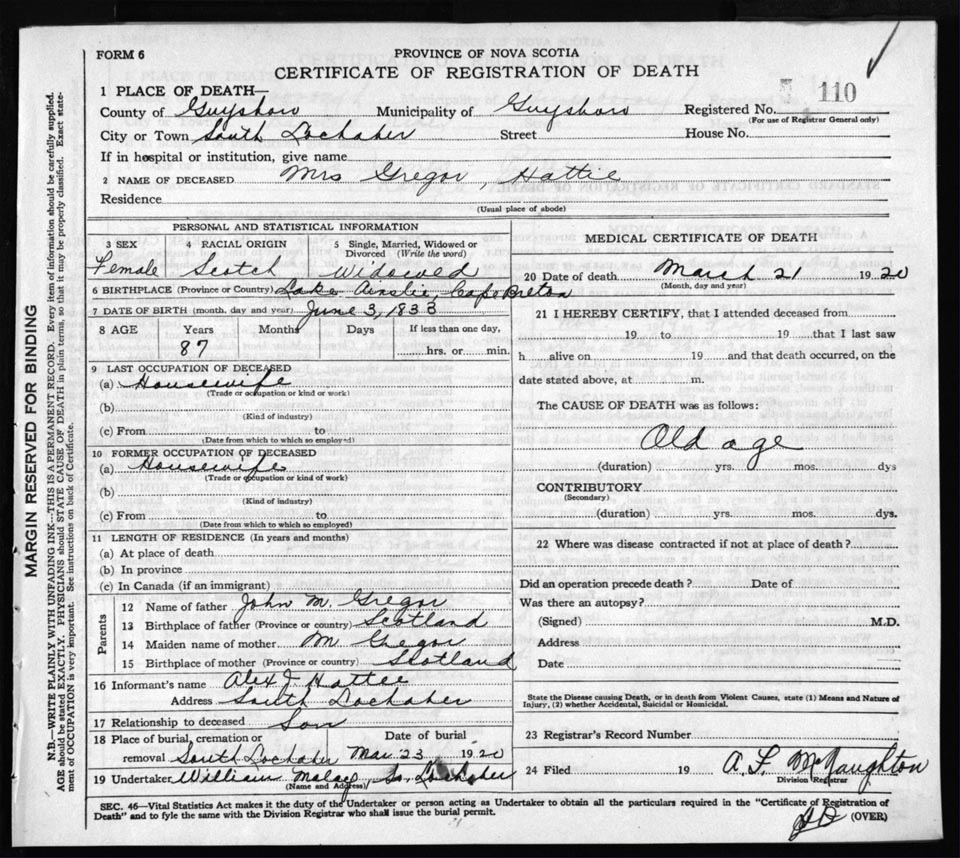 FORM 6
PROVINCE OF NOVA SCOTIA
CERTIFICATE OF REGISTRATION OF DEATH
110
1 PLACE OF DEATH—
County of Guysboro Municipality of Guysboro Registered No.
(For use of Registrar General only)
City or Town South Lochaber Street House No.
If in hospital or institution, give name
2 NAME OF DECEASED Mrs Gregor, Hattie
Residence
(Usual place of abode)
PERSONAL AND STATISTICAL INFORMATION
3 SEX 4 RACIAL ORIGIN 5 Single, Married, Widowed or Divorced (Write the word)
Female Scotch Widowed
6 BIRTHPLACE (Province or Country) Lake Ainslie, Cape Breton
7 DATE OF BIRTH (month, day and year) June 3, 1833
8 AGE Years Months Days If less than one day,
87 hrs. or min.
9 LAST OCCUPATION OF DECEASED
(a) Housewife
(Trade or occupation or kind or work)
(b)
(Kind of industry)
(c) From to
(Date from which to which so employed)
10 FORMER OCCUPATION OF DECEASED
(a) Housewife
(Trade or occupation or kind of work)
(b)
(Kind of industry)
(c) From to
(Date from which to which so employed)
11 LENGTH OF RESIDENCE (In years and months)
(a) At place of death
(b) In province
(c) In Canada (if an immigrant)
Parents
12 Name of father John M. Gregor
13 Birthplace of father (Province or country) Scotland
14 Maiden name of mother M Gregor
15 Birthplace of mother (Province or country) Scotland
16 Informant's name Alex J. Hattie
Address South Lochaber
17 Relationship to deceased Son
18 Place of burial, cremation or removal South Lochaber Date of burial Mar 23 1920
19 Undertaker William So. Lochaber
(Name and Address)
MEDICAL CERTIFICATE OF DEATH
20 Date of death March 21 1920
(Month, day and year)
21 I HEREBY CERTIFY, that I attended deceased from
19 to 19 that I last saw
h alive on 19 and that death occurred, on the
date stated above, at m.
The CAUSE OF DEATH was as follows:
Old age
(duration) yrs. mos. dys
CONTRIBUTORY
(Secondary)
(duration) yrs. mos. dys.
22 Where was disease contracted if not at place of death?
Did an operation precede death? Date of
Was there an autopsy?
(Signed) M.D.
Address
Date
State the Disease causing Death, or in death from Violent Causes, state (1) Means and Nature of
Injury, (2) whether Accidental, Suicidal or Homicidal.
23 Registrar's Record Number
24 Filed 19 A. F. McNaughton
Division Registrar
SEC. 46—Vital Statistics Act makes it the duty of the Undertaker or person acting as Undertaker to obtain all the particulars required in the "Certificate of Registration of
Death" and to fyle the same with the Division Registrar who shall issue the burial permit.
(OVER)
MARGIN RESERVED FOR BINDING
N.B.—WRITE PLAINLY WITH UNFADING INK—THIS IS A PERMANENT RECORD. Every item of information should be carefully supplied.
AGE should be stated EXACTLY. PHYSICIANS should STATE CAUSE OF DEATH in plain terms, so that it may be properly classified. Exact state-
ment of OCCUPATION is very important. See instructions on back of Certificate.